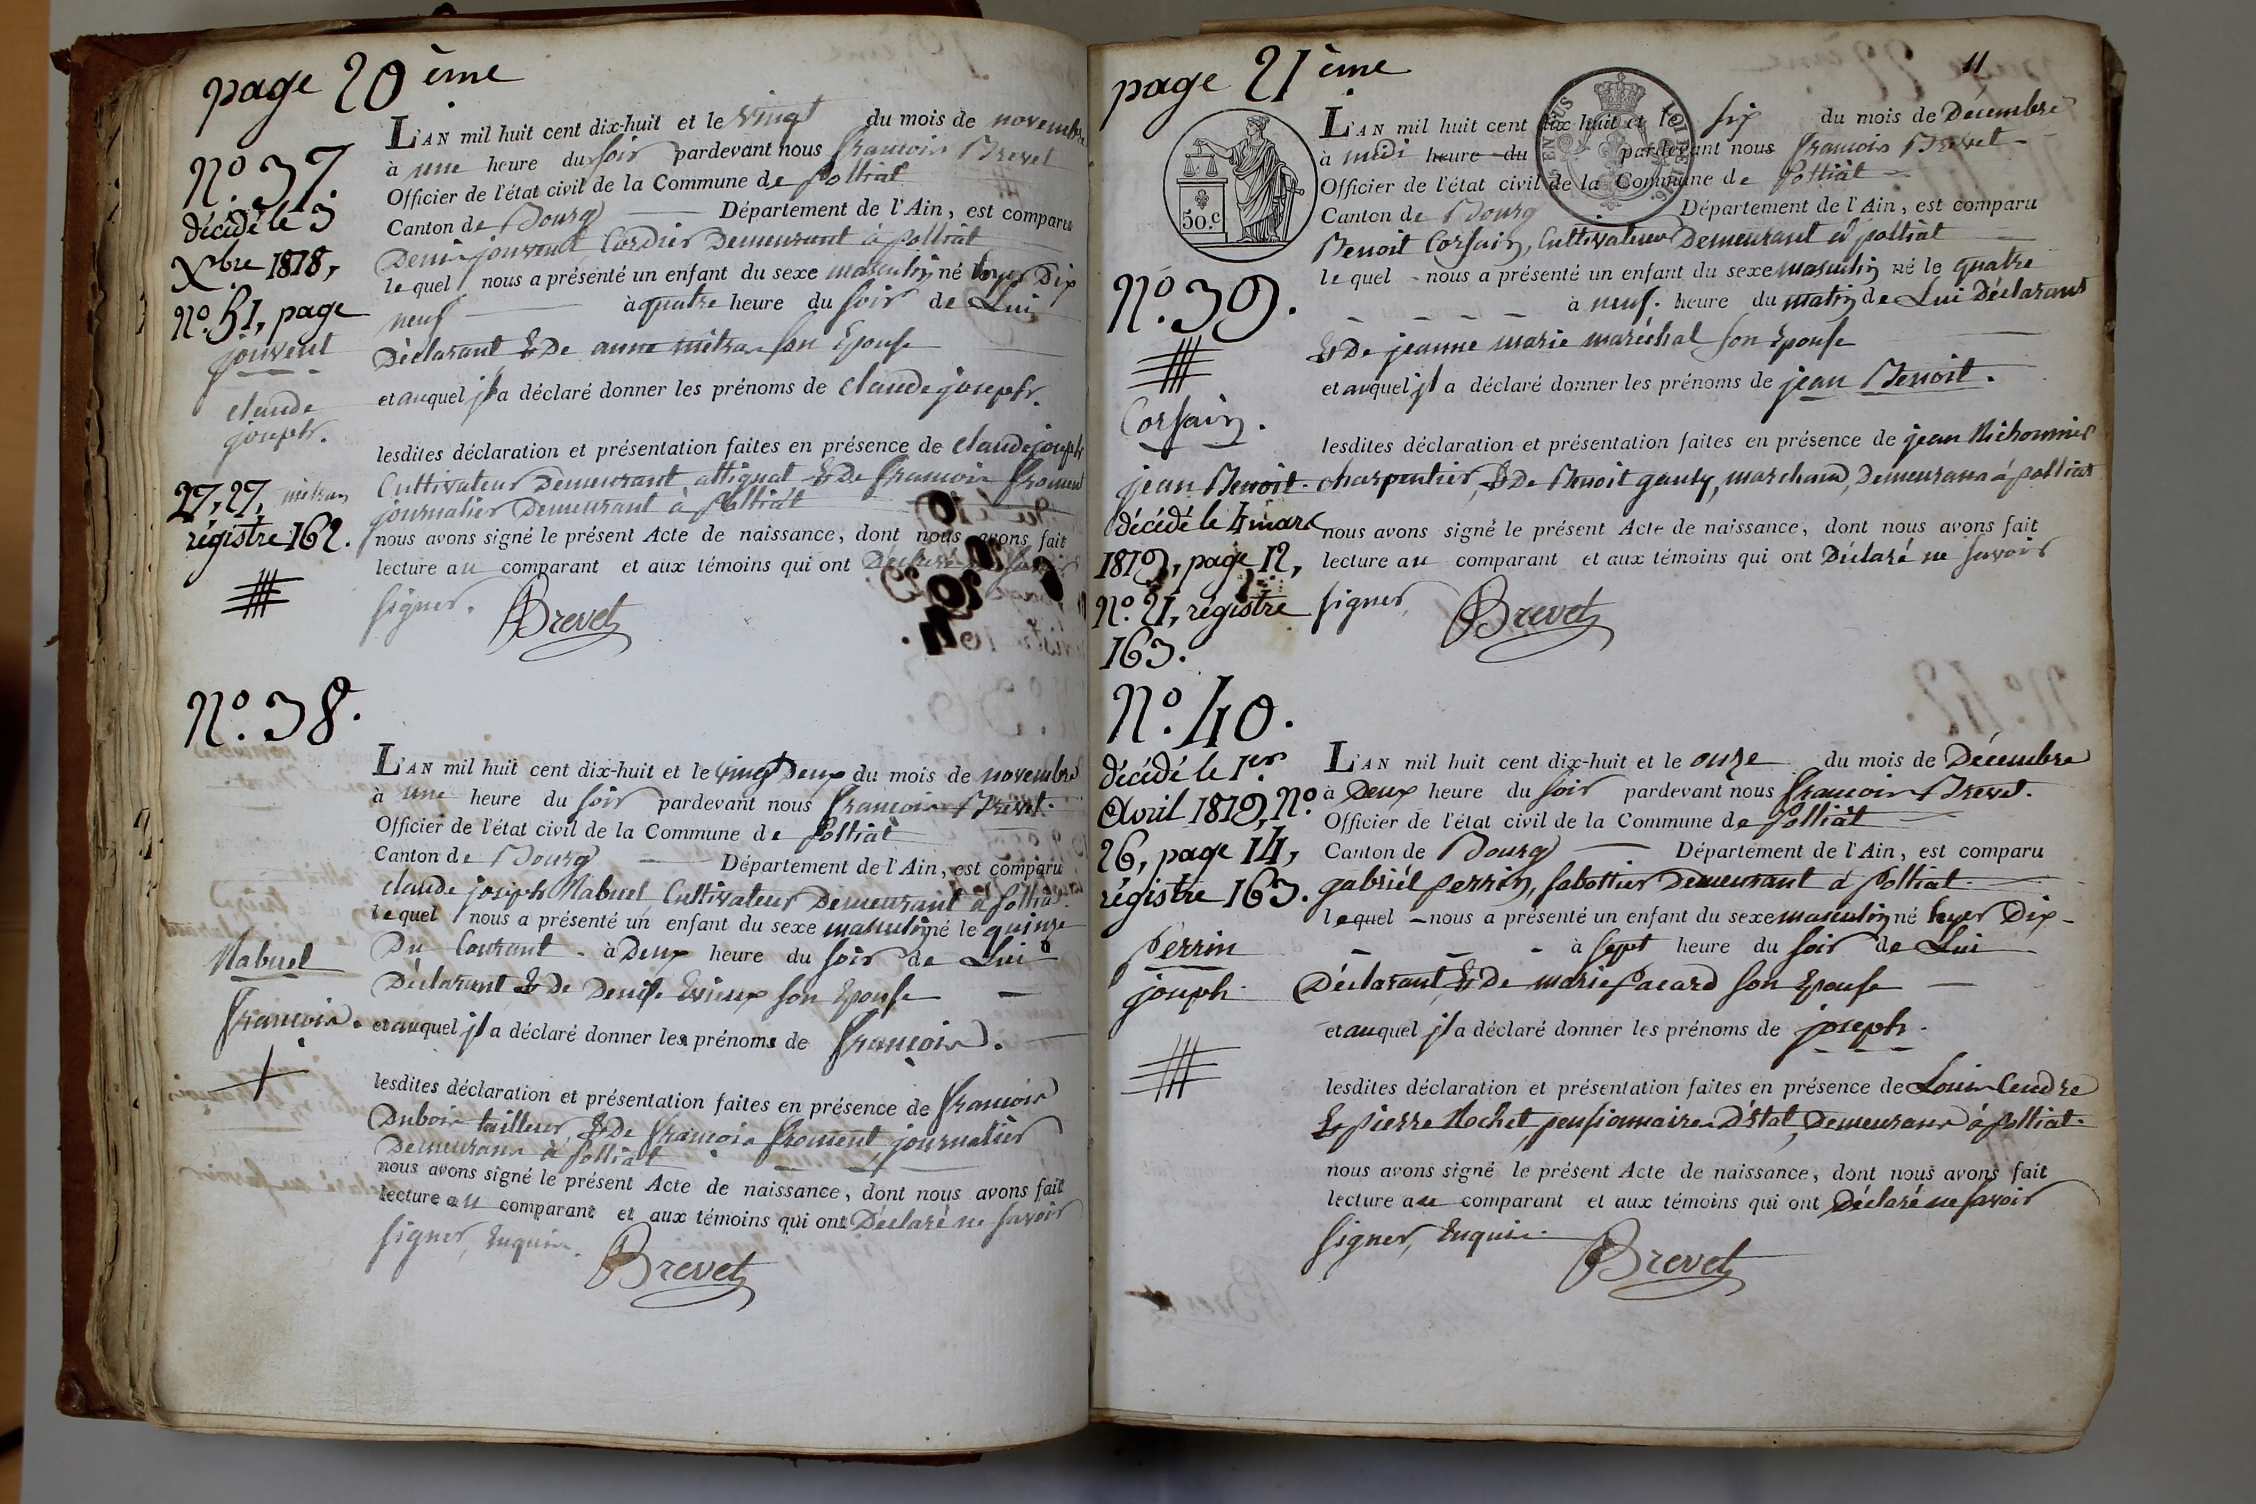 page 20ème
N.º 37.
décédé le 3
Xbre 1818,
Nº. 51, page
jouvent
claude
joseph.
27, 27, mitran
régistre 162.
L'AN mil huit cent dix-huit et le vingt du mois de novembre
à une heure du soir pardevant nous françois Brevet
Officier de l'état civil de la Commune de Polliat
Canton de Bourg Département de l'Ain, est comparu
Denis jouvent, Cordier Demeurant à polliat
le quel nous a présenté un enfant du sexe masculin né hyer Dix
neuf à quatre heure du soir de Lui
Déclarant & De anne mitran son Epouse
et auquel jl a déclaré donner les prénoms de claude joseph.
lesdites déclaration et présentation faites en présence de claude joseph
Cultivateur Demeurant attignat & De françois froment
journalier Demeurant à Polliat
nous avons signé le présent Acte de naissance, dont nous avons fait
lecture au comparant et aux témoins qui ont Déclaré
signer. Brevet
N.º 38.
Mabuel
françois.
L'AN mil huit cent dix-huit et le vingt Deux du mois de novembre
à une heure du soir pardevant nous françois Brevet.
Officier de l'état civil de la Commune de Polliat
Canton de Bourg Département de l'Ain, est comparu
claude joseph Mabuel Cultivateur Demeurant à Polliat.
le quel nous a présenté un enfant du sexe masculin né le quinze
Du Courant à Deux heure du soir de Lui
Déclarant & De Denise son Epouse
et auquel jl a déclaré donner les prénoms de françois.
lesdites déclaration et présentation faites en présence de françois
Dubois tailleur, & De françois froment, journalier
Demeurans à Polliat
nous avons signé le présent Acte de naissance, dont nous avons fait
lecture au comparant et aux témoins qui ont Déclaré ne savoir
signer, Enquis. Brevet
page 21ème
11
50.c
LOI DE 1816.
N.º 39.
Corsain.
jean Benoit.
décédé le 4 mars
1819, page 12,
Nº. 21, régistre
163.
L'AN mil huit cent dix-huit et le six du mois de Décembre
à midi heure du pardevant nous françois Brevet
Officier de l'état civil de la Commune de Polliat
Canton de Bourg Département de l'Ain, est comparu
Benoit Corsain, Cultivateur Demeurant à polliat
le quel nous a présenté un enfant du sexe masculin né le quatre
à neuf. heure du matin de Lui Déclarant
& De jeanne marie maréchal son Epouse
et auquel jl a déclaré donner les prénoms de jean Benoit.
lesdites déclaration et présentation faites en présence de jean
charpentier, & De Benoit gauty, marchand, Demeurans à polliat
nous avons signé le présent Acte de naissance, dont nous avons fait
lecture au comparant et aux témoins qui ont Déclaré ne savoir
signer, Brevet
N.º 40.
décédé le 1er
Avril 1819, Nº
26, page 14,
régistre 163.
Perrin
joseph
L'AN mil huit cent dix-huit et le onze du mois de Décembre
à Deux heure du soir pardevant nous françois Brevet.
Officier de l'état civil de la Commune de Polliat
Canton de Bourg Département de l'Ain, est comparu
gabriél perrin, sabottier Demeurant à Polliat.
lequel nous a présenté un enfant du sexe masculin né hyer Dix
à sept heure du soir de Lui
Déclarant, & De marie Pacard son Epouse
et auquel jl a déclaré donner les prénoms de joseph.
lesdites déclaration et présentation faites en présence de Louis Cendre
& pierre Mochet, pensionnaires D'Etat, Demeurans à Polliat.
nous avons signé le présent Acte de naissance, dont nous avons fait
lecture au comparant et aux témoins qui ont Déclaré ne savoir
signer, Enquis. Brevet